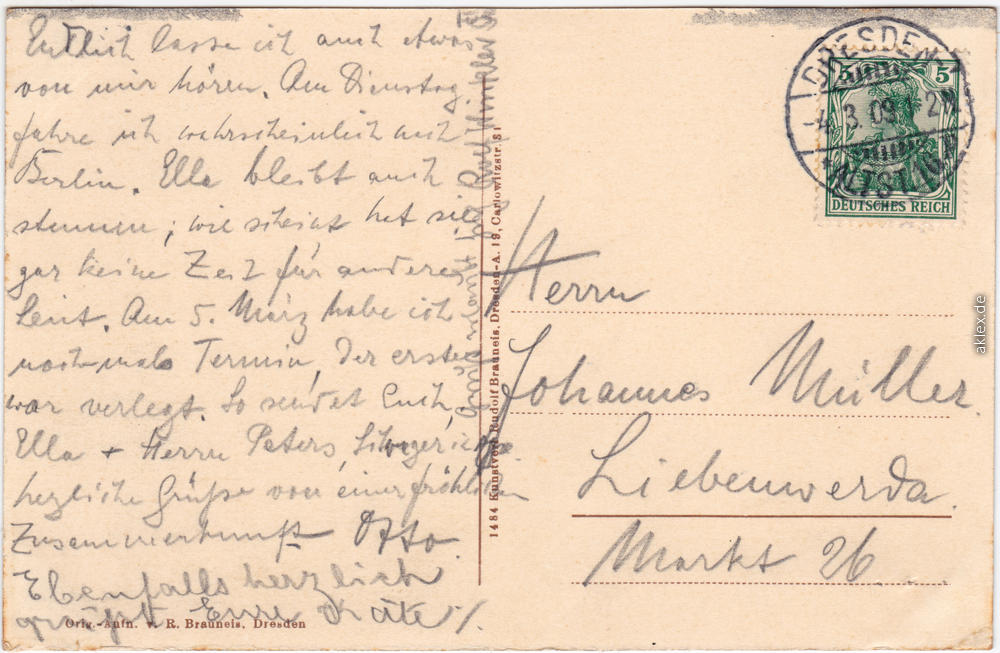 Endlich lasse ich auch etwas
von mir hören. Am Dienstag
fahre ich wahrscheinlich nach
Berlin. Ella bleibt auch
stumm; wie scheint hat sie
gar keine Zeit für andere
Leut. Am 5. März habe ich
noch-mals Termin, der erste
war verlegt. So sendet Euch,
Ella + Herrn Peters,
herzliche Grüße von einer fröhlichen
Zusammenkunft Otto.
Ebenfalls herzlich
grüßt Eure Käte
Orig.-Aufn. v. R. Brauneis, Dresden
1484 Kunstverl. Rudolf Brauneis, Dresden-A. 19, Carlowitzstr. 31
DRESDEN
-4.3.09
ALTST.
5 5
DEUTSCHES REICH
Herrn
Johannes Müller
Liebenwerda
Markt 26
aklex.de